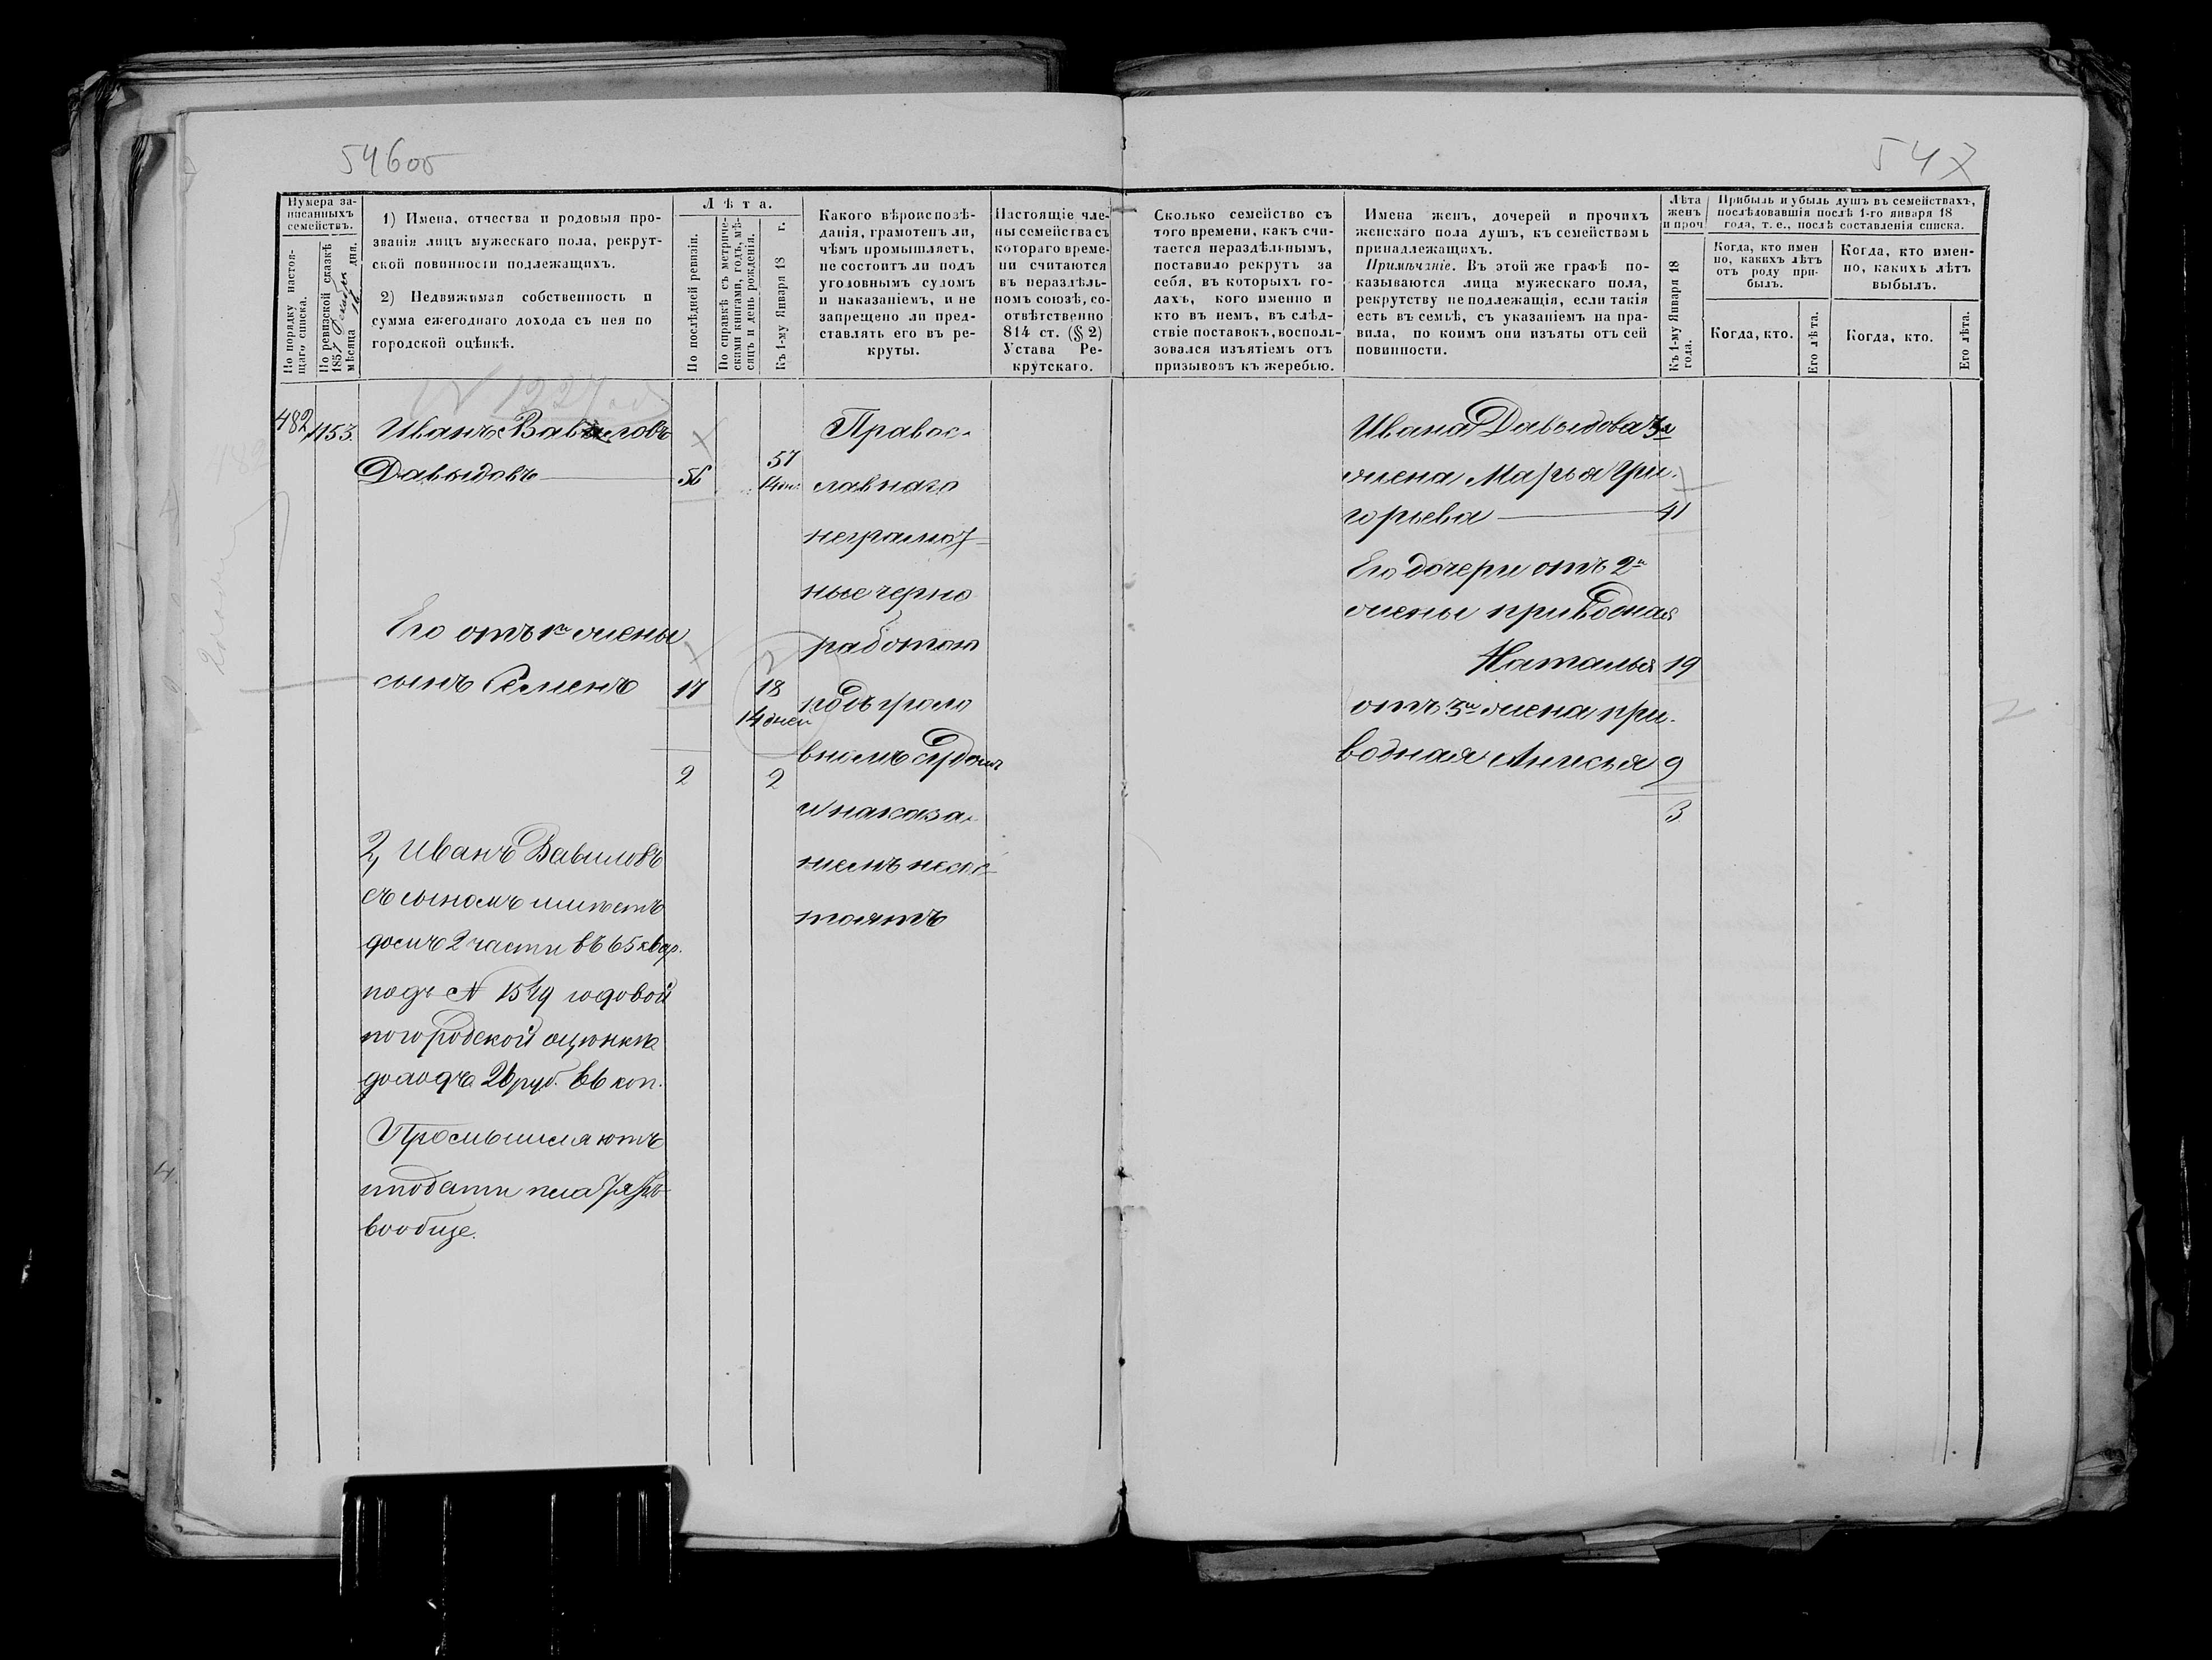 54600
547
Нумера записанныхъ семействъ.
По порядку настоящаго списка.
По ревизской сказкѣ 1857 мѣсяца 16 дня.
1) Имена, отчества и родовыя прозванія лицъ мужескаго пола, рекрутской повинности подлежащихъ.
2) Недвижимая собственность и сумма ежегоднаго дохода съ нея по городской оцѣнкѣ.
Лѣта.
По послѣдней ревизіи.
По справкѣ съ метрическими книгами, годъ, мѣсяцъ и день рожденія.
Къ 1-му Января 18 г.
Какого вѣроисповѣданія, грамотенъ ли, чѣмъ промышляетъ, не состоитъ ли подъ уголовнымъ судомъ и наказаніемъ, и не запрещено ли представлять его въ рекруты.
Настоящіе члены семейства съ котораго времени считаются въ нераздѣльномъ союзѣ, соотвѣтственно 814 ст. (§ 2) Устава Рекрутскаго.
Сколько семейство съ того времени, какъ считается нераздѣльнымъ, поставило рекрутъ за себя, въ которыхъ годахъ, кого именно и кто въ немъ, въ слѣдствіе поставокъ, воспользовался изъятіемъ отъ призывовъ къ жеребью.
Имена женъ, дочерей и прочихъ женскаго пола душъ, къ семействамъ принадлежащихъ.
Примѣчаніе. Въ этой же графѣ показываются лица мужескаго пола, рекрутству не подлежащія, если такія есть въ семьѣ, съ указаніемъ на правила, по коимъ они изъяты отъ сей повинности.
Лѣта женъ и проч
Къ 1-му Января 18 года.
Прибыль и убыль душъ въ семействахъ, послѣдовавшія послѣ 1-го января 18 года, т. е., послѣ составленія списка.
Когда, кто имен но, какихъ лѣтъ отъ роду прибылъ.
Когда, кто именно, какихъ лѣтъ выбылъ.
Когда, кто.
Его лѣта.
Когда, кто.
Его лѣта.
482
1153.
Иванъ Вавиловъ
Давыдовъ 56
57
14 дн.
Его отъ 1й жены
сынъ Семенъ 17
18
14 дней
2 2
2, Иванъ Вавиловъ
съ сыномъ имѣетъ
домъ 2 части въ 65 квар.
подъ N 1549 годовой
по городской оцѣнкѣ
доходъ 26 руб. 66 коп.
Промышляютъ
и подати платятъ
вообще.
Правос-
лавнаго
неграмот-
ные черно
работою
подъ уголо
внымъ судомъ
и наказа-
ніемъ несос-
тоятъ
Ивана Давыдова 3я
жена Марья Гри-
горьева 41
Его дочери отъ 2й
жены приводная
Наталья 19
отъ 3й жена при-
водная Анисья 9
3